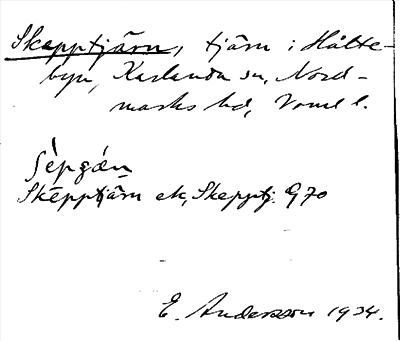 Skepptjärn, tjärn i Hålte-
byn, Karlanda sn, Nord-
marks hd, Vrml l.
Skēpptjärn ek, Skepptj. G70
E. Andersson 1934.